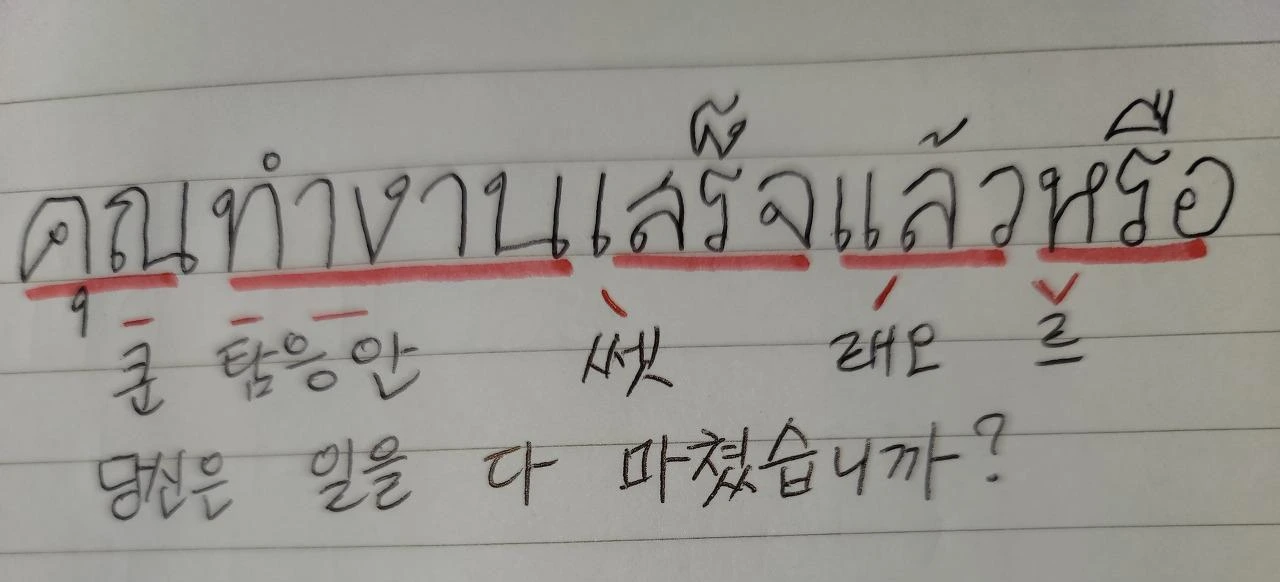 คุณทำงานเสร็จแล้วหรือ
쿤 탐응안 쎗 래오 르
당신은 일을 다 마쳤습니까?